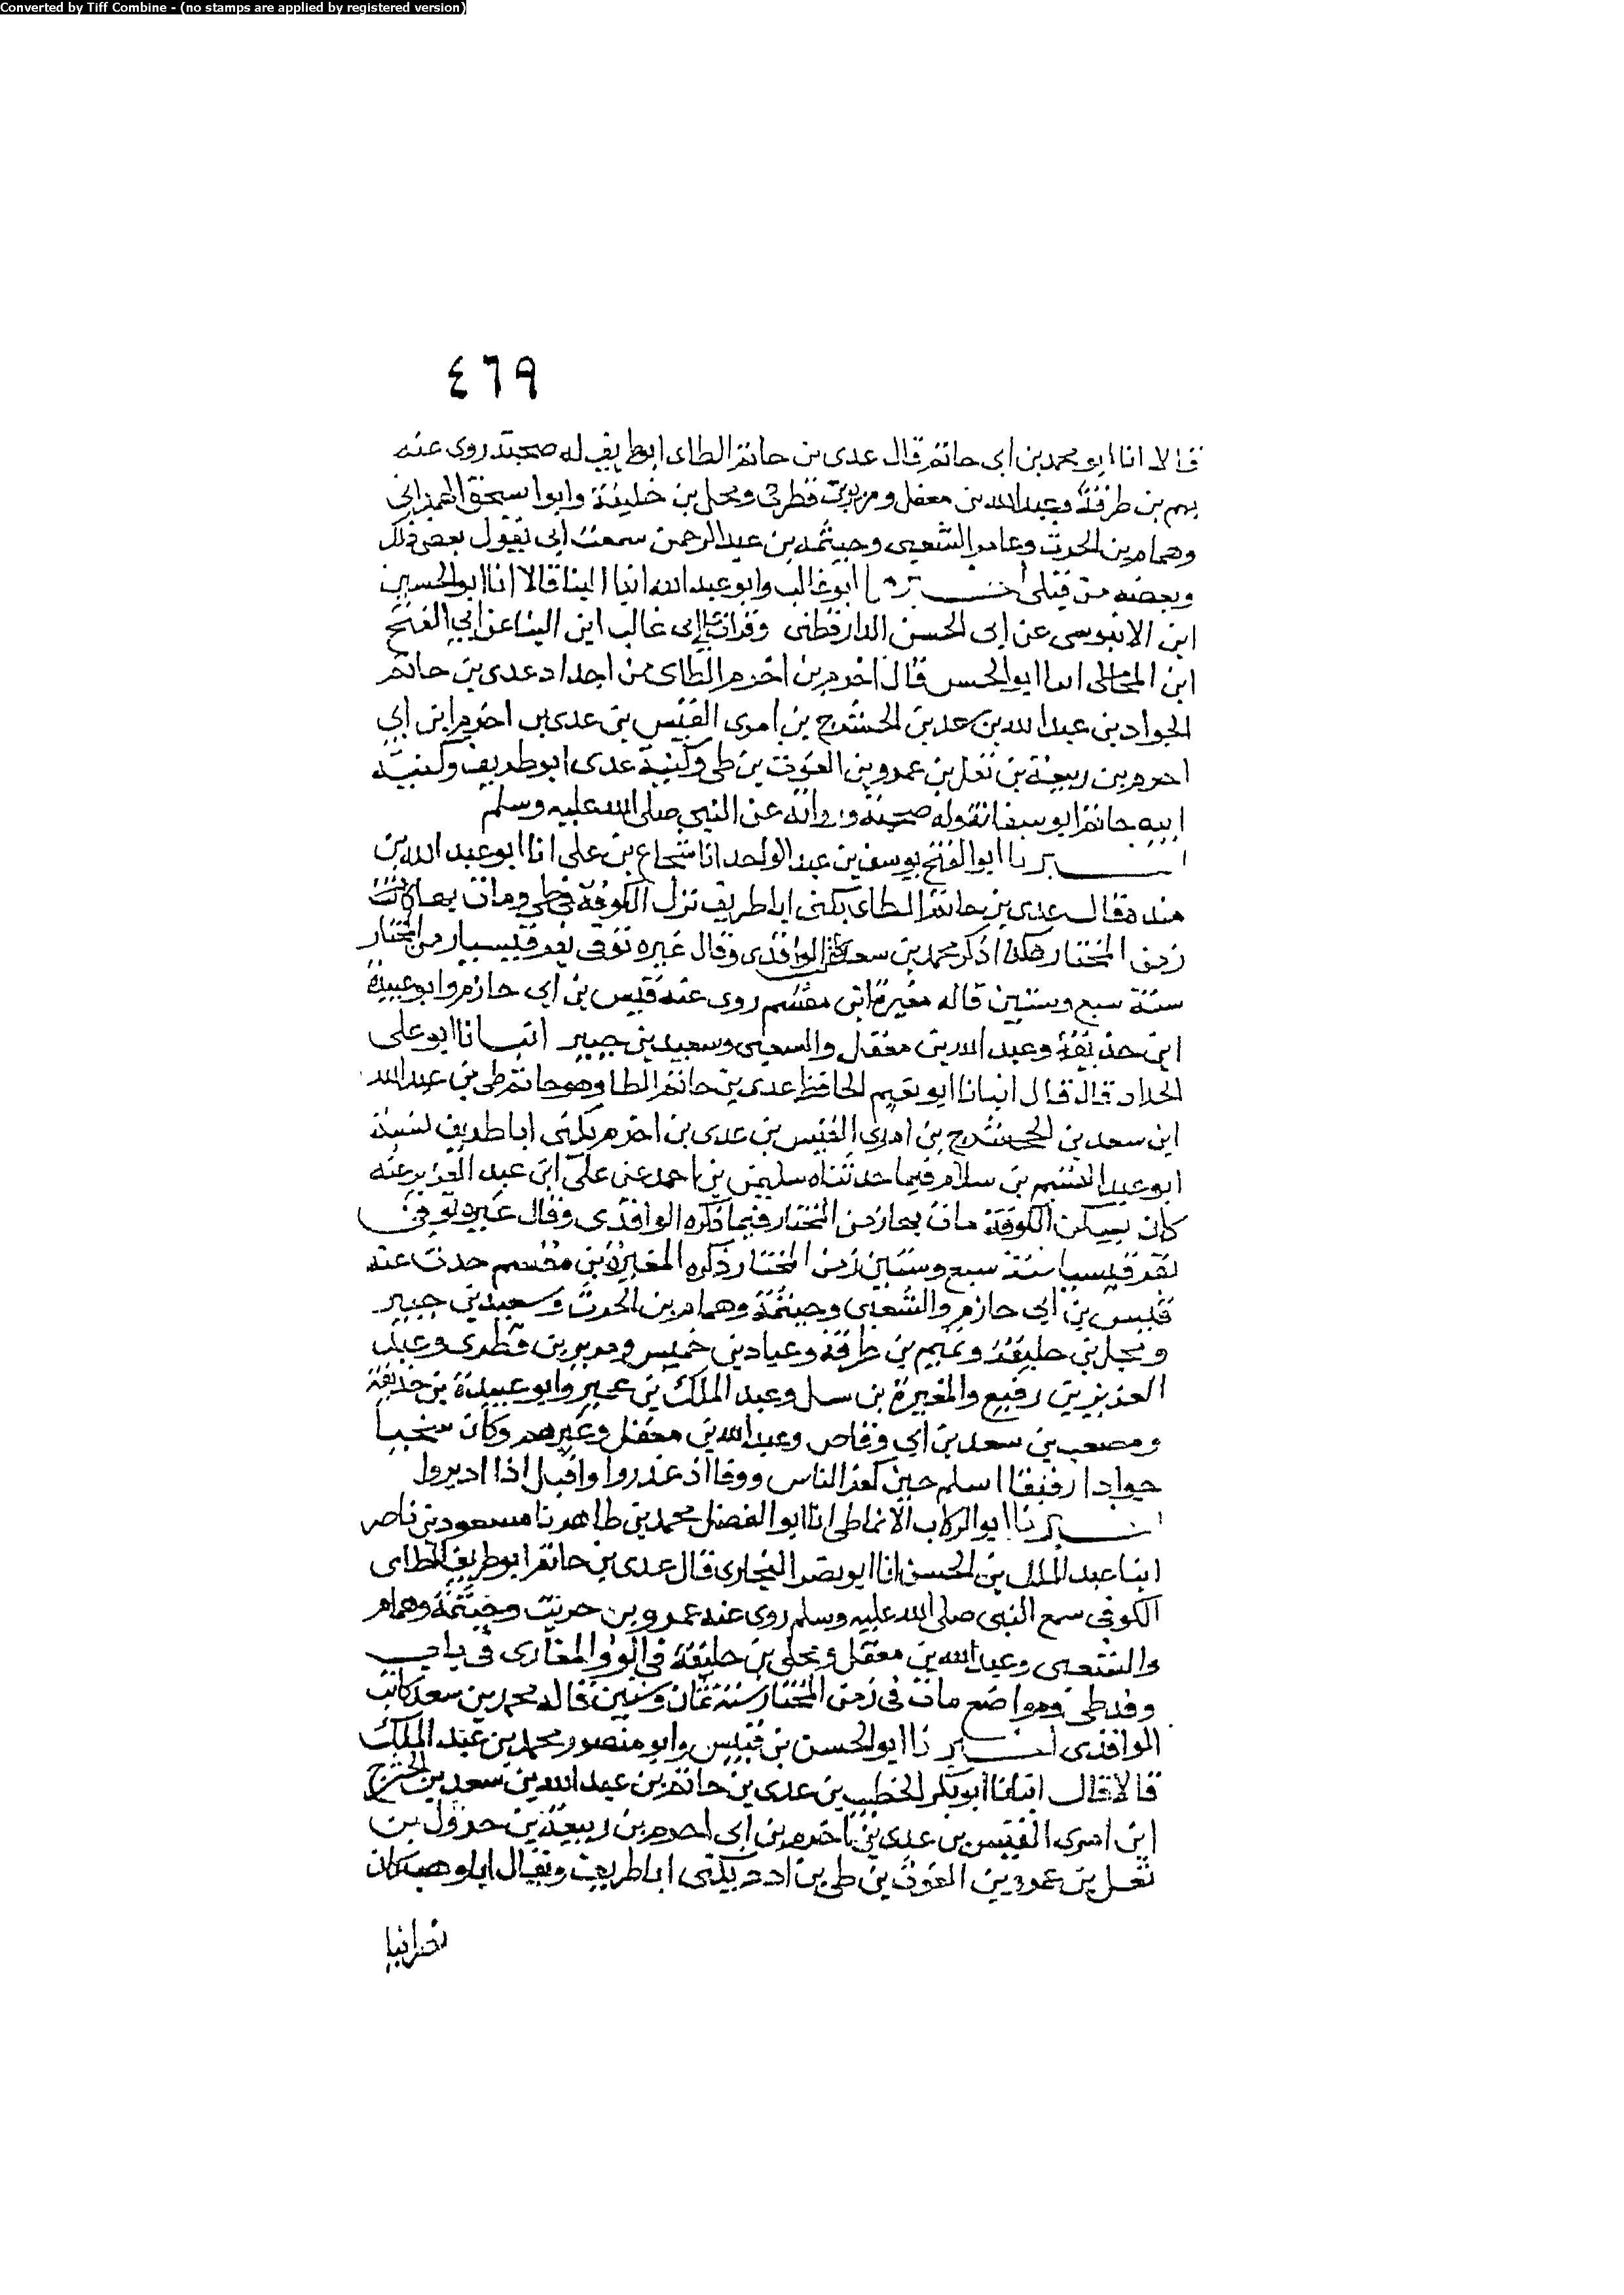 Converted by Tiff Combine - (no stamps are applied by registered version)
٤٦٩
قالا انا ابو محمد بن ابى حاتم قال عدى بن حاتم الطاى ابو طريف له صحبة روى عنه
بن طرفة وعبد الله بن معقل ومرى بن قطرى ومحل بن خليفة وابوا سحق الهمدانى
وهمام بن الحرث وعامر الشعبى وخيثمة بن عبد الرحمن سمعت ابى يقول بعض ذلك
وبعضه من قبلى اخبرنا ابو غالب وابو عبد الله ابنا البنا قالا انا ابو الحسين
ابن الابنوسى عن ابى الحسن الدارقطنى وقرات على ابى غالب ابن البنا عن ابى الفتح
ابن المحاملى انا ابو الحسن قال اخزم بن اخزم الطاى من اجداد عدى بن حاتم
الجواد بن عبد الله بن سعد بن الحشرج بن امرى القيس بن عدى بن اخزم ابن ابى
اخزم بن ربيعة بن ثعل بن عمرو بن الغوث بن طى وكنية عدى ابو طريف وكنية
ابيه حاتم ابو سفانة وله صحبة ورواية عن النبى صلى الله عليه وسلم
اخبرنا ابو الفتح يوسف بن عبد الواحد انا شجاع بن على انا ابو عبد الله بن
مندة قال عدى بن حاتم الطاى يكنى ابا طريف نزل الكوفة ومات بها
زمن المختار هكذا ذكر محمد بن سعد الواقدى وقال غيره توفى بقرقيسيا زمن المختار
سنة سبع وستين قاله مغيرة ابن مقسم روى عنه قيس بن ابى حازم وابو عبيدة
ابن حذيفة وعبد الله بن معقل والشعبى وسعيد بن جبير انبانا ابو على
الحداد قال قال انبانا ابو نعيم الحافظ عدى بن حاتم الطا وهو حاتم طى بن عبد الله
ابن سعد بن الحشرج بن امرى القيس بن عدى بن اخزم يكنى ابا طريف نسبه
ابو عبيد القسم بن سلام فيما حدثناه سليمن بن احمد عن على ابن عبد العزيز عنه
كان يسكن الكوفة مات بها زمن المختار فيما ذكره الواقدى وقال غيره توفى
بقرقيسيا سنة سبع وستين زمن المختار ذكره المغيرة بن مقسم حدث عنه
قيس بن ابى حازم والشعبى وخيثمة وهمام بن الحرث وسعيد بن جبير
ومحل بن خليفة وتميم بن طرفة وعباد بن حبيش ومرى بن قطرى وعبد
العزيز بن رفيع والمغيرة بن سل وعبد الملك بن عمير وابو عبيدة بن حذيفة
ومصعب بن سعد بن ابى وقاص وعبد الله بن معقل وغيرهم وكان سخيا
جوادا رفيقا اسلم حين كفر الناس ووفا اذ غدروا واقبل اذا ادبروا
اخبرنا ابو البركات الانماطى انا ابو الفضل محمد بن طاهر نا مسعود بن ناصر
انبا عبد الملك بن الحسن انا ابو نصر البخارى قال عدى بن حاتم ابو طريف الطاى
الكوفى سمع النبى صلى الله عليه وسلم روى عنه عمرو بن حريث وخيثمة وهمام
والشعبى وعبد الله بن معقل ومحل بن خليفة فى والمغازى فى باب
وفد طى ومواضع مات فى زمن المختار سنة ثمان وستين قاله محمد بن سعد كاتب
الواقدى اخبرنا ابو الحسن بن قبيس وابو منصور محمد بن عبد الملك
قالا قال انبانا ابو بكر الخطيب بن عدى بن حاتم بن عبد الله بن سعد بن الحشرج
ابن امرى القيس بن عدى بن اخزم بن ابى اخزم بن ربيعة بن جرول بن
ثعل بن عمرو بن الغوث بن طى بن ادد يكنى ابا طريف ويقال ابا وهب كان
نصرانيا